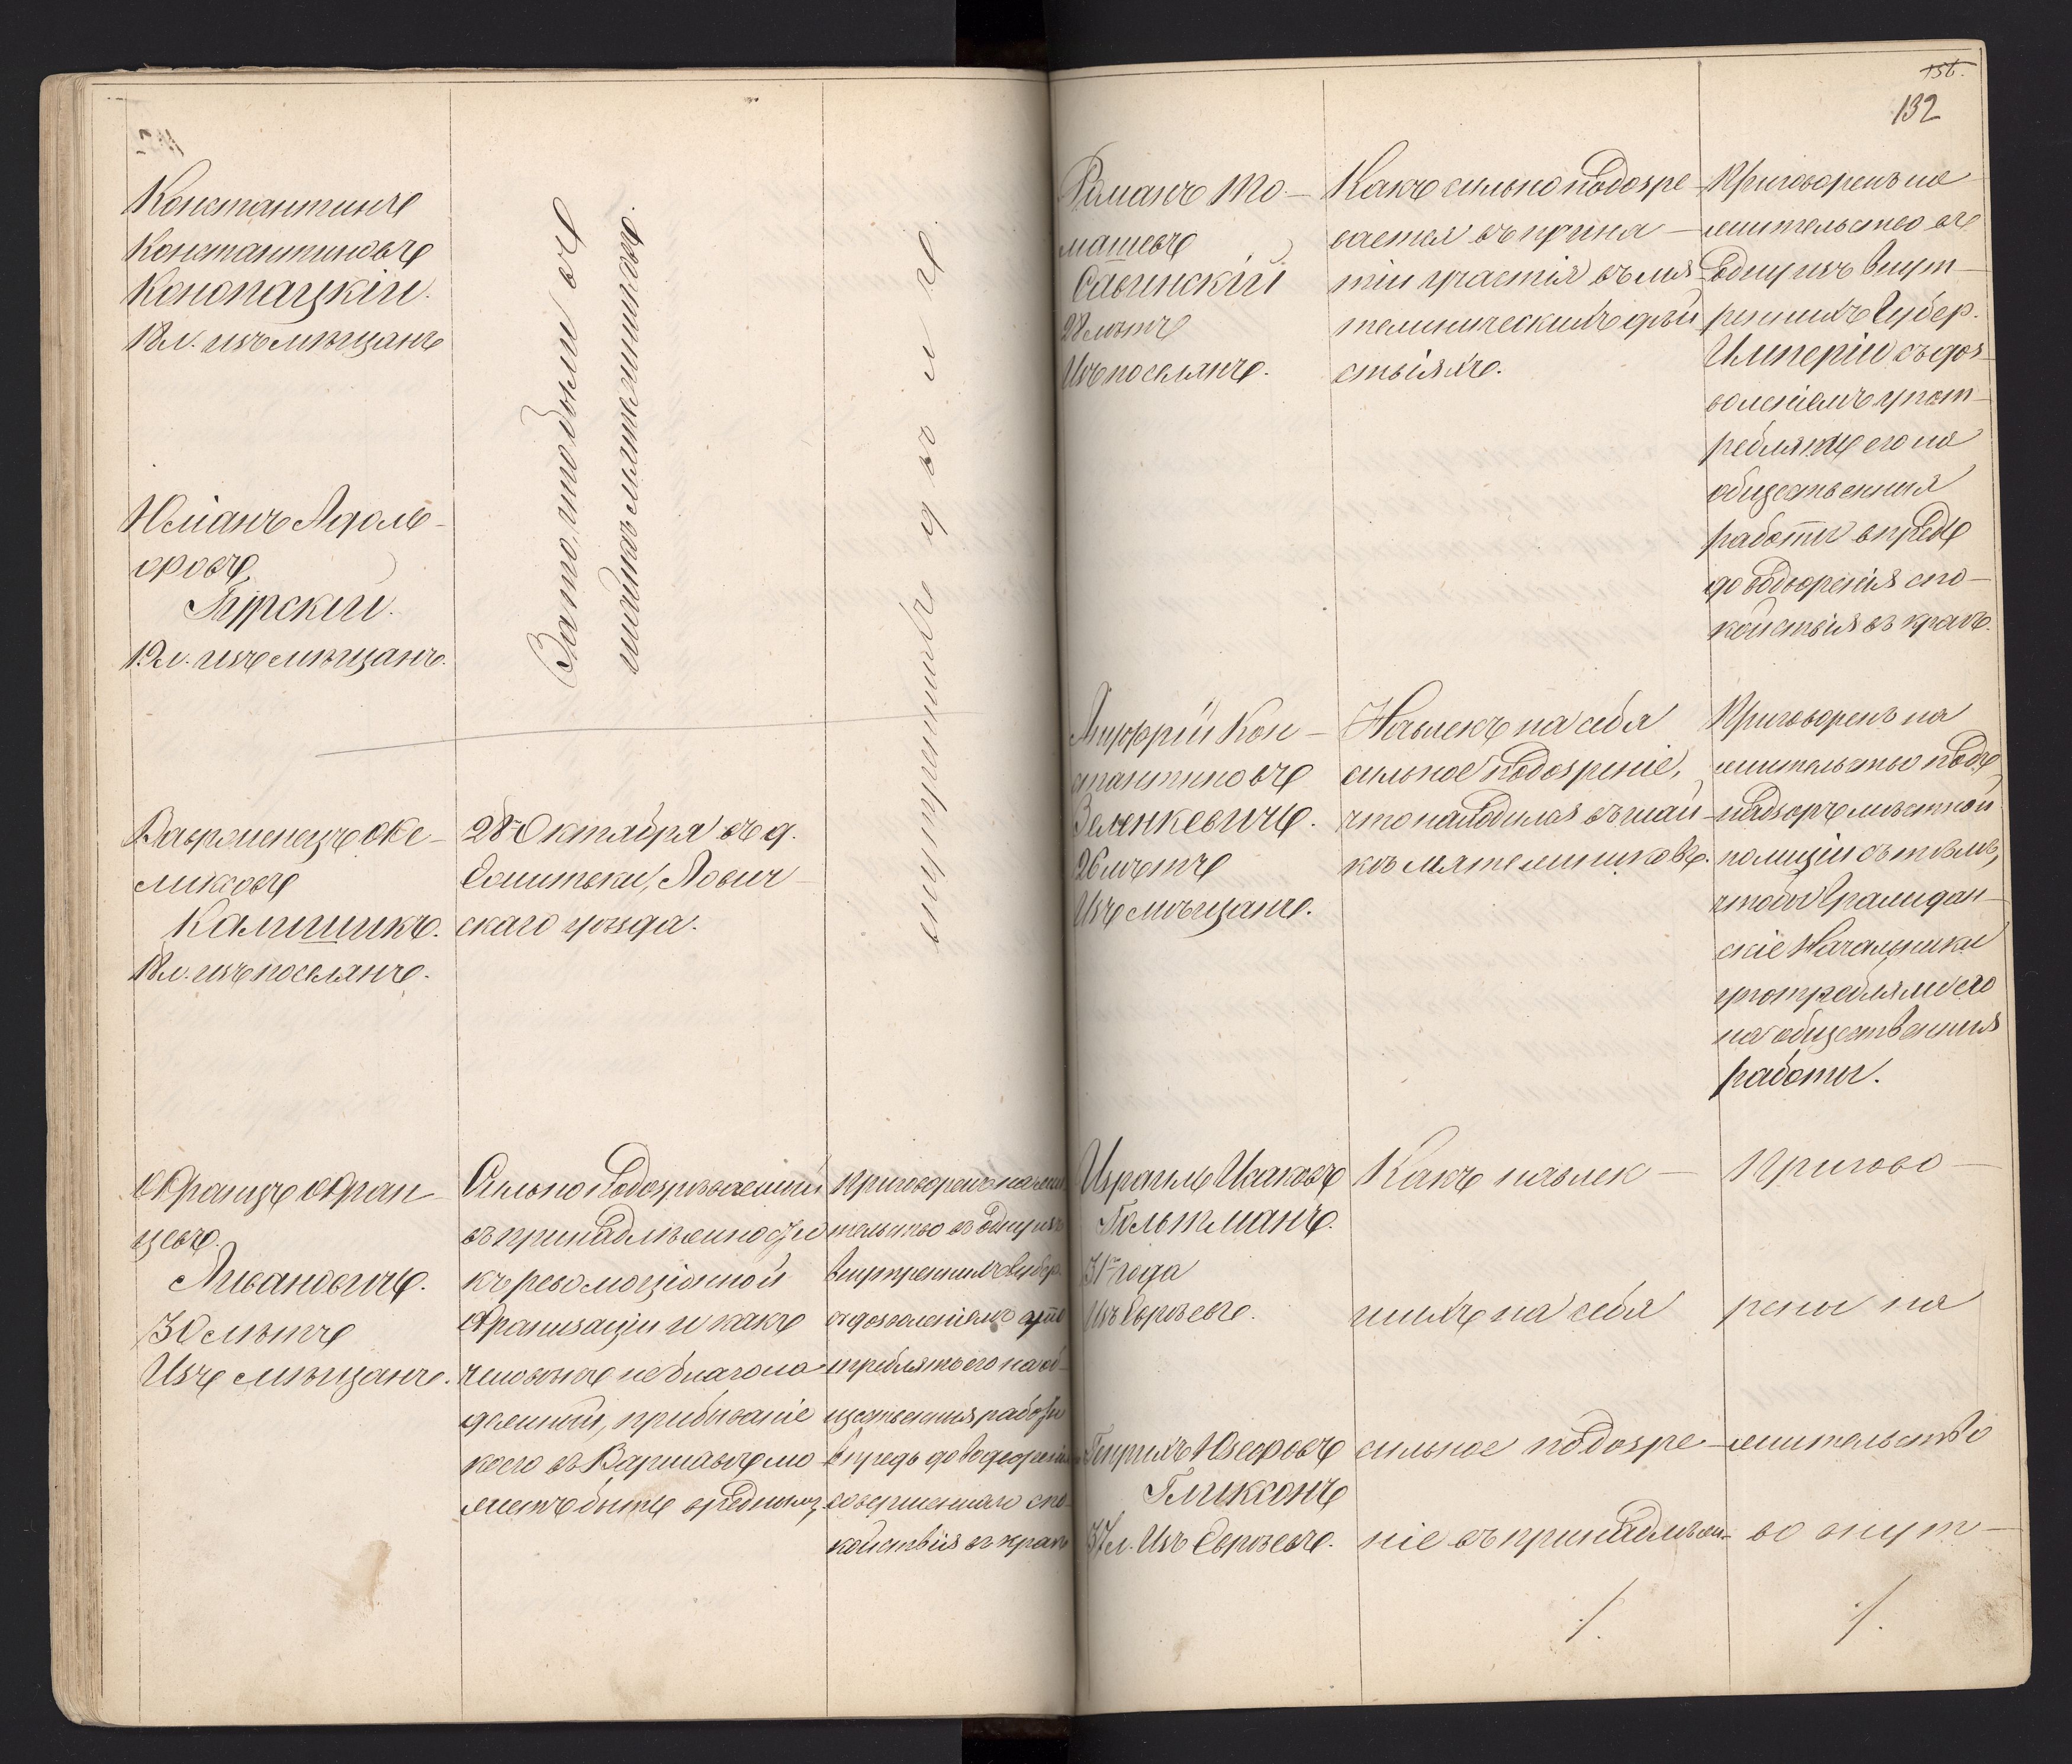 Константинъ
Константиновъ
Конопацкій.
18 л. изъ мѣщанъ
Юліанъ Адоль-
фовъ
Турскій.
19 л. изъ мѣщанъ.
За то, что были въ
шайкахъ мятежниковъ.
внутреннихъ
28 Октября въ д.
ликсовъ
Калишикъ.
скаго уѣзда.
18 л. изъ поселянъ.
Францъ Фран-
цевъ.
Ливановичъ.
30 лѣтъ
Изъ мѣщанъ.
Сильно подозрѣваемый
въ принадлежности
къ революціонной
Организаціи и какъ
человѣкъ неблагона-
дежный, прибываніе
коего въ Варшавѣ мо-
жетъ быть вреднымъ.
Приговоренъ на жи-
тельство въ одну изъ
внутреннихъ Губер.
съ дозволеніемъ упо
треблять его на об-
щественныя работы
впредь до водворенія
совершеннаго спо-
койствія въ краѣ
156.
132
Романъ То-
машевъ
Савинскій
28 лѣтъ
Изъ поселянъ.
Какъ сильно подозре-
вается въ приня-
тіи участія въ мя-
тежническихъ дѣй
ствіяхъ.
Приговоренъ на
жительство въ
одну изъ внут-
реннихъ Губер.
Имперіи съ доз-
воленіемъ упот-
реблять его на
общественныя
работы впредь
до водворенія спо-
койствія въ краѣ.
Онуфрій Кон-
стантиновъ
Зеленкевичъ.
26 лѣтъ
Изъ мѣщанъ.
Навлекъ на себя
сильное подозреніе,
что находился въ шай-
къ мятежниковъ.
Приговоренъ на
жительство подъ
надзоръ мѣстной
полиціи съ тѣмъ,
чтобы Граждан-
скіе Начальники
употребляли его
на общественныя
работы.
Израиль Исаковъ
Гольтманъ.
31 года
Изъ Евреевъ.
Генрихъ Юзефовъ
Гликсонъ
37 л. Изъ Евреевъ.
Какъ навлек-
шихъ на себя
сильное подозре-
ніе въ принадлеж-
./.
Пригово-
рены на
жительство
во внут-
./.